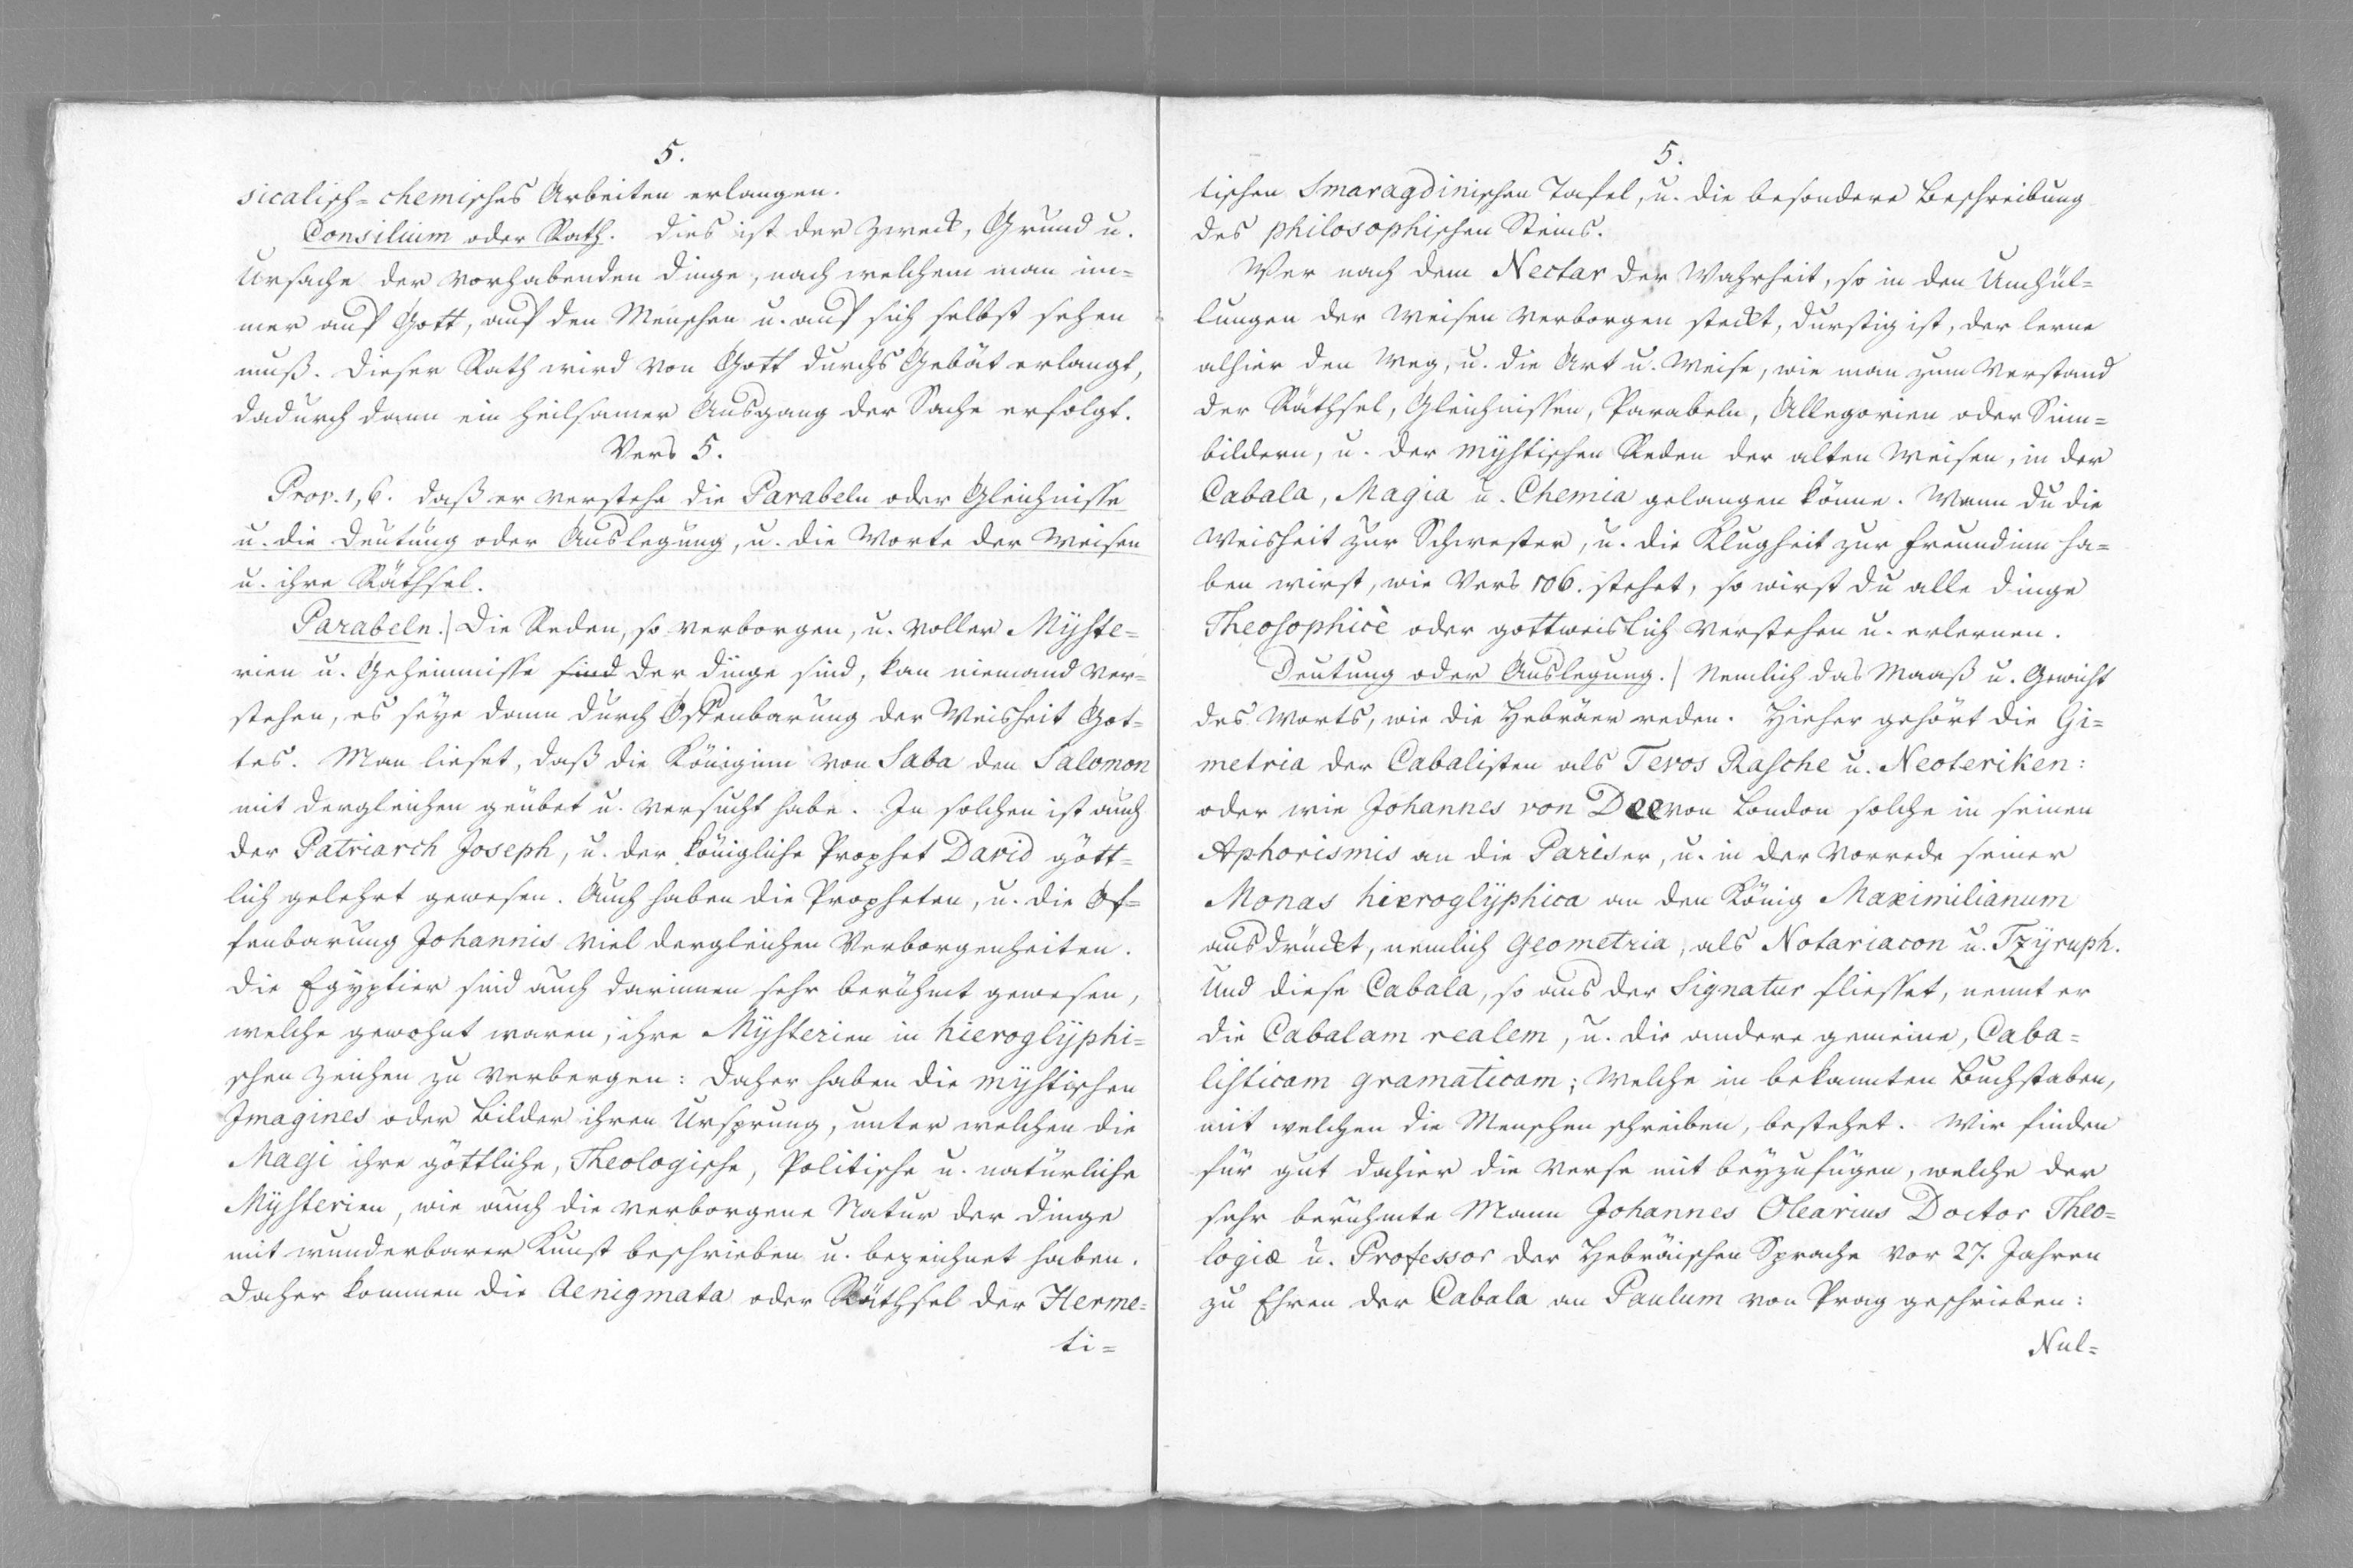 5.
sicalisch-chemisches Arbeiten erlangen.
Consilium oder Rath. dies ist der Zweck, Grund u.
Ursache der vorhabenden Dinge, nach welchem man im=
mer auf Gott, auf den Menschen u. auf sich selbst sehen
muß. Dieser Rath wird von Gott durchs Gebät erlangt,
dadurch dann ein heilsamer Ausgang der Sache erfolgt.
Vers 5.
Prov. 1, 6. daß er verstehe die Parabeln oder Gleichnisse
u. die Deutung oder Auslegung, u. die Worte der Weisen
u. ihre Räthsel.
Parabeln.| Die Reden, so verborgen, u. voller Myste=
rien u. Geheimnisse sind der dinge sind, kan niemand ver=
stehen, es seye dann durch Offenbarung der Weisheit Got=
tes. Man lieset, daß die Königinn von Saba den Salomon
mit dergleichen geübet u. versucht habe. In solchen ist auch
der Patriarch Joseph, u. der königliche Prophet David gött=
lich gelehrt gewesen. Auch haben die Propheten, u. die Of=
fenbarung Johannis viel dergleichen Verborgenheiten.
Die Egyptier sind auch darinnen sehr berühmt gewesen,
welche gewohnt waren, ihre Mysterien in hieroglÿphi=
schen Zeichen zu verbergen: daher haben die mÿstischen
Imagines oder Bilder ihren Ursprung, unter welchen die
Magi ihre göttliche, Theologische, Politische u. natürliche
Mÿsterien, wie auch die verborgene Natur der Dinge
mit wunderbarer Kunst beschrieben u. bezeichnet haben.
Daher kommen die Aenigmata oder Räthsel der Herme=
ti=
5.
tischen Smaragdinischen Tafel, u. die besondere Beschreibung
des philosophischen Steins.
Wer nach dem Nectar der Wahrheit, so in den Umhül=
lungen der Weisen verborgen steckt, durstig ist, der lerne
alhier den Weg, u. die Art u. Weise, wie man zum Verstand
der Räthsel, Gleichnissen, Parabeln, Allegorien oder Sinn=
bildern, u. der mÿstischen Reden der alten Weisen, in der
Cabala, Magia u. Chemia gelangen könne. Wenn du die
Weisheit zur Schwester, u. die Klugheit zur Freundinn ha=
ben wirst, wie Vers 106. stehet, so wirst du alle Dinge
Theosophicè oder gottweislich verstehen u. erlernen.
Deutung oder Auslegung.| Nemlich das Maaß u. Gewicht
des Worts, wie die Hebräer reden. Hieher gehört die Gi=
metria der Cabalisten als Tevos Rasche u. Neoteriken:
oder wie Johannes von Dee von London solche in seinen
Aphorismis an die Pariser, u. in der Vorrede seiner
Monas hieroglÿphica an den König Maximilianum
ausdrückt, nemlich Geometria, als Notariacon u. Tzÿruph.
Und diese Cabala, so aus der Signatur fliesset, nennt er
die Cabalam realem, u. die andere gemeine, Caba=
listicam gramaticam; welche in bekannten Buchstaben,
mit welchen die Menschen schreiben, bestehet. Wir finden
für gut dahier die Verse mit beyzufügen, welche der
sehr berühmte Mann Johannes Olearius Doctor Theo=
logiæ u. Professor der Hebräischen Sprache vor 27. Jahren
zu Ehren der Cabala an Paulum von Prag geschrieben:
Nul=